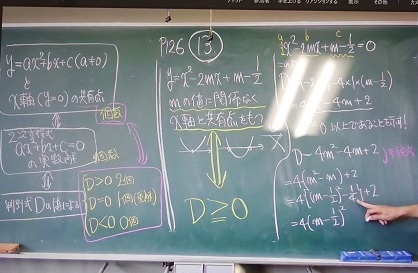 y=ax²+bx+c(a≠0)
と
x軸(y=0)の共有点
個数
2次方程式
ax²+bx+c=0
の実数解
個数
判別式Dの値による
D>0 2個
D=0 1個
D<0 0個
P126 ⑬
y=x²-2mx+m-1/2
mの値に関係なく
x軸と共有点をもつ
x
D≧0
a b c
x²-2mx+m-1/2=0
-4×1×(m-1/2)
-4m+2
0以上であることを示す!
D=4m²-4m+2
=4(m²-m)+2
=4{(m-1/2)²-1/4}+2
=4(m-1/2)²